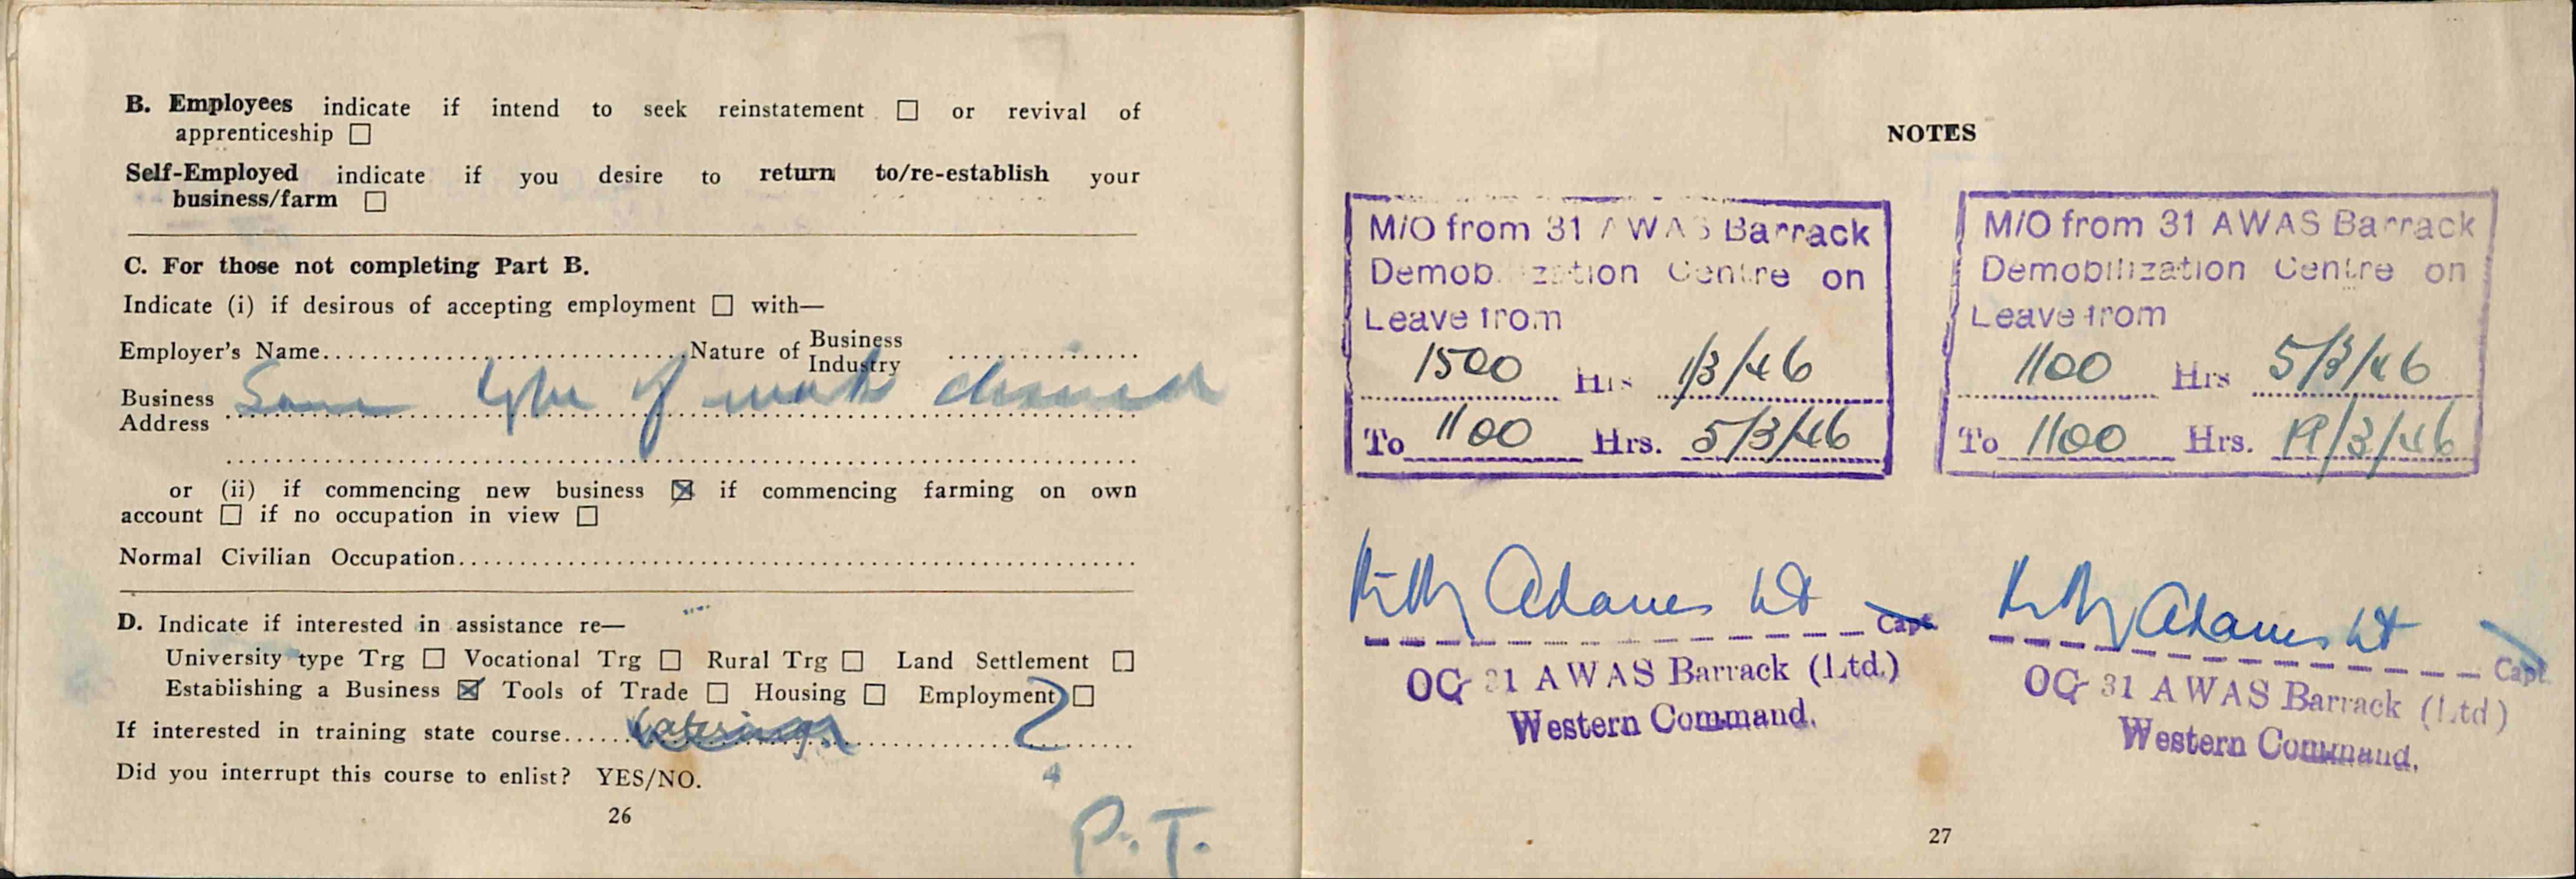 B. Employees indicate if intend to seek reinstatement ☐ or revival of
apprenticeship ☐
Self-Employed indicate if you desire to return to/re-establish your
business/farm ☐
C. For those not completing Part B.
Indicate (i) if desirous of accepting employment ☐ with—
Employer's Name.............................Nature of Business
Industry ................
Business
Address Same type of work desired
or (ii) if commencing new business ☒ if commencing farming on own
account ☐ if no occupation in view ☐
Normal Civilian Occupation.......................................................
D. Indicate if interested in assistance re—
University type Trg ☐ Vocational Trg ☐ Rural Trg ☐ Land Settlement ☐
Establishing a Business ☒ Tools of Trade ☐ Housing ☐ Employment ☐
If interested in training state course..... Catering ?
Did you interrupt this course to enlist? YES/NO.
26
P.T.
NOTES
M/O from 31 AWAS Barrack
Demobilization Centre on
Leave from
1500 Hrs 1/3/46
To 1100 Hrs. 5/3/46
Adames Lt Capt
OC 31 AWAS Barrack (Ltd.)
Western Command.
M/O from 31 AWAS Barrack
Demobilization Centre on
Leave from
1100 Hrs 5/3/46
To 1100 Hrs. 19/3/46
Adames Lt Capt
OC 31 AWAS Barrack (Ltd)
Western Command.
27